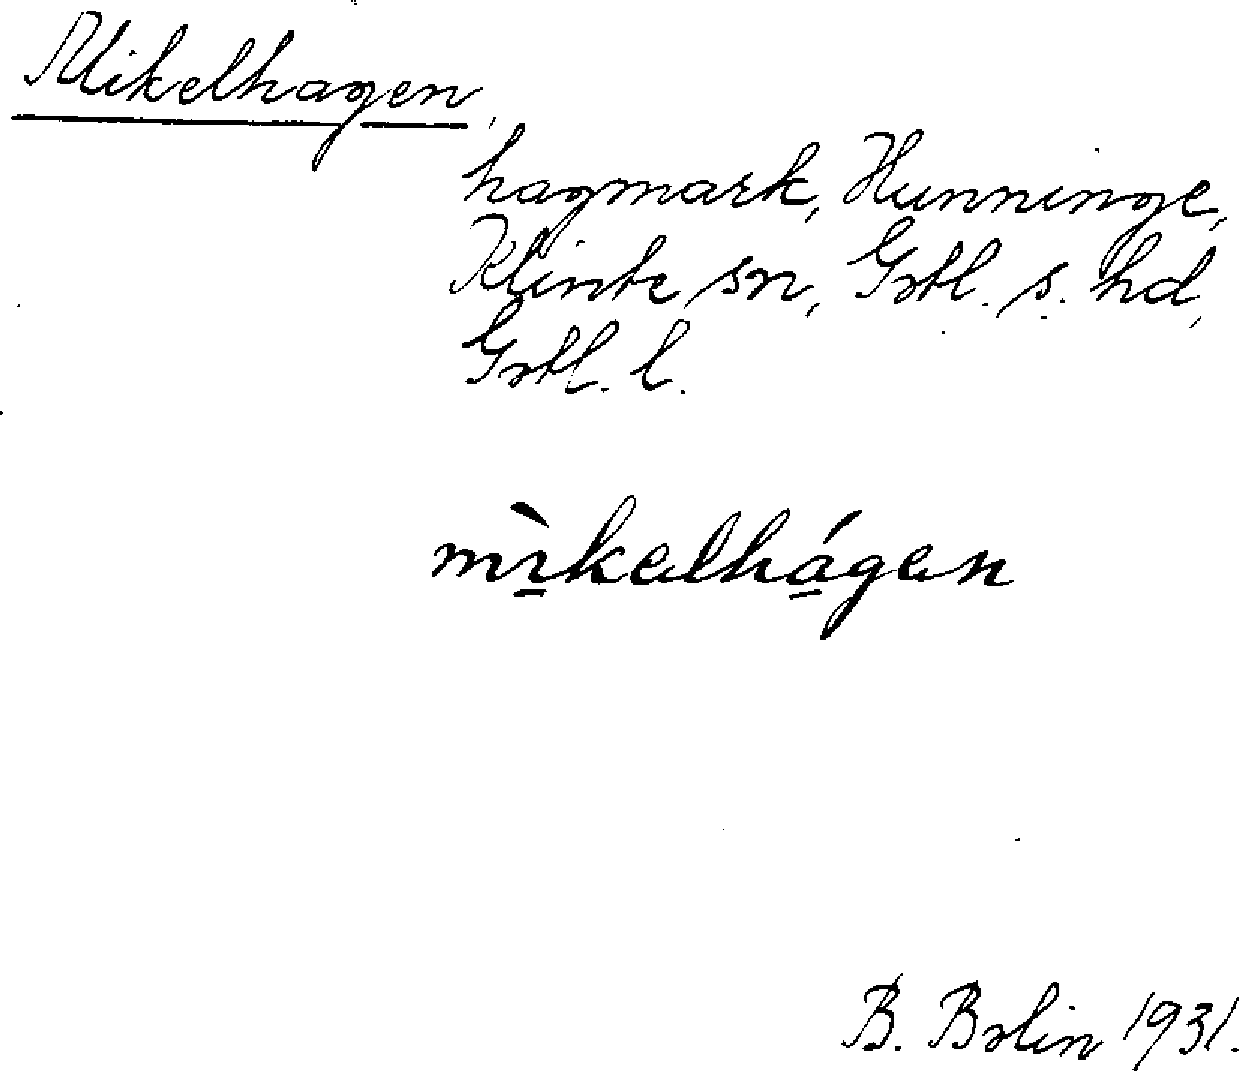 Mikelhagen,
hagmark, Hunninge,
Klinte sn, Gotl. s. hd,
Gotl. l.
mìkelhágen
B. Bolin 1931.